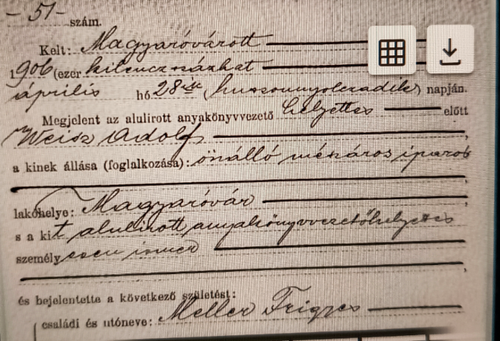 - 51 - szám.
Kelt: Magyaróvárott
1906 (ezer kilenczszázhat
április hó 28ik (huszonnyolczadik) napján.
Megjelent az alulirott anyakönyvvezető helyettes előtt
Weisz Adolf
a kinek állása (foglalkozása): önálló mészáros iparos
lakóhelye: Magyaróvár
s a kit alulirott anyakönyvvezetőhelyettes
személyesen ismer
és bejelentette a következő születést:
családi és utóneve: Meller Frigyes